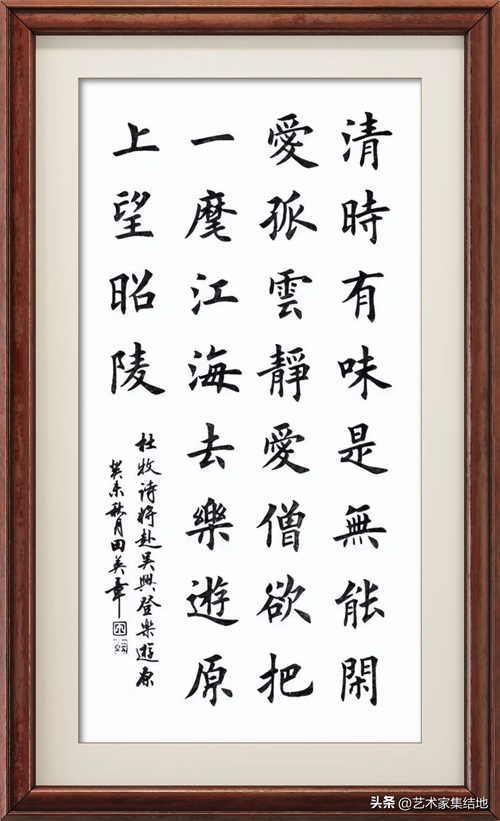 清時有味是無能閑
愛孤雲靜愛僧欲把
一麾江海去樂遊原
上望昭陵
杜牧诗将赴吴興登樂遊原
癸未秋月田英章
头条 @艺术家集结地